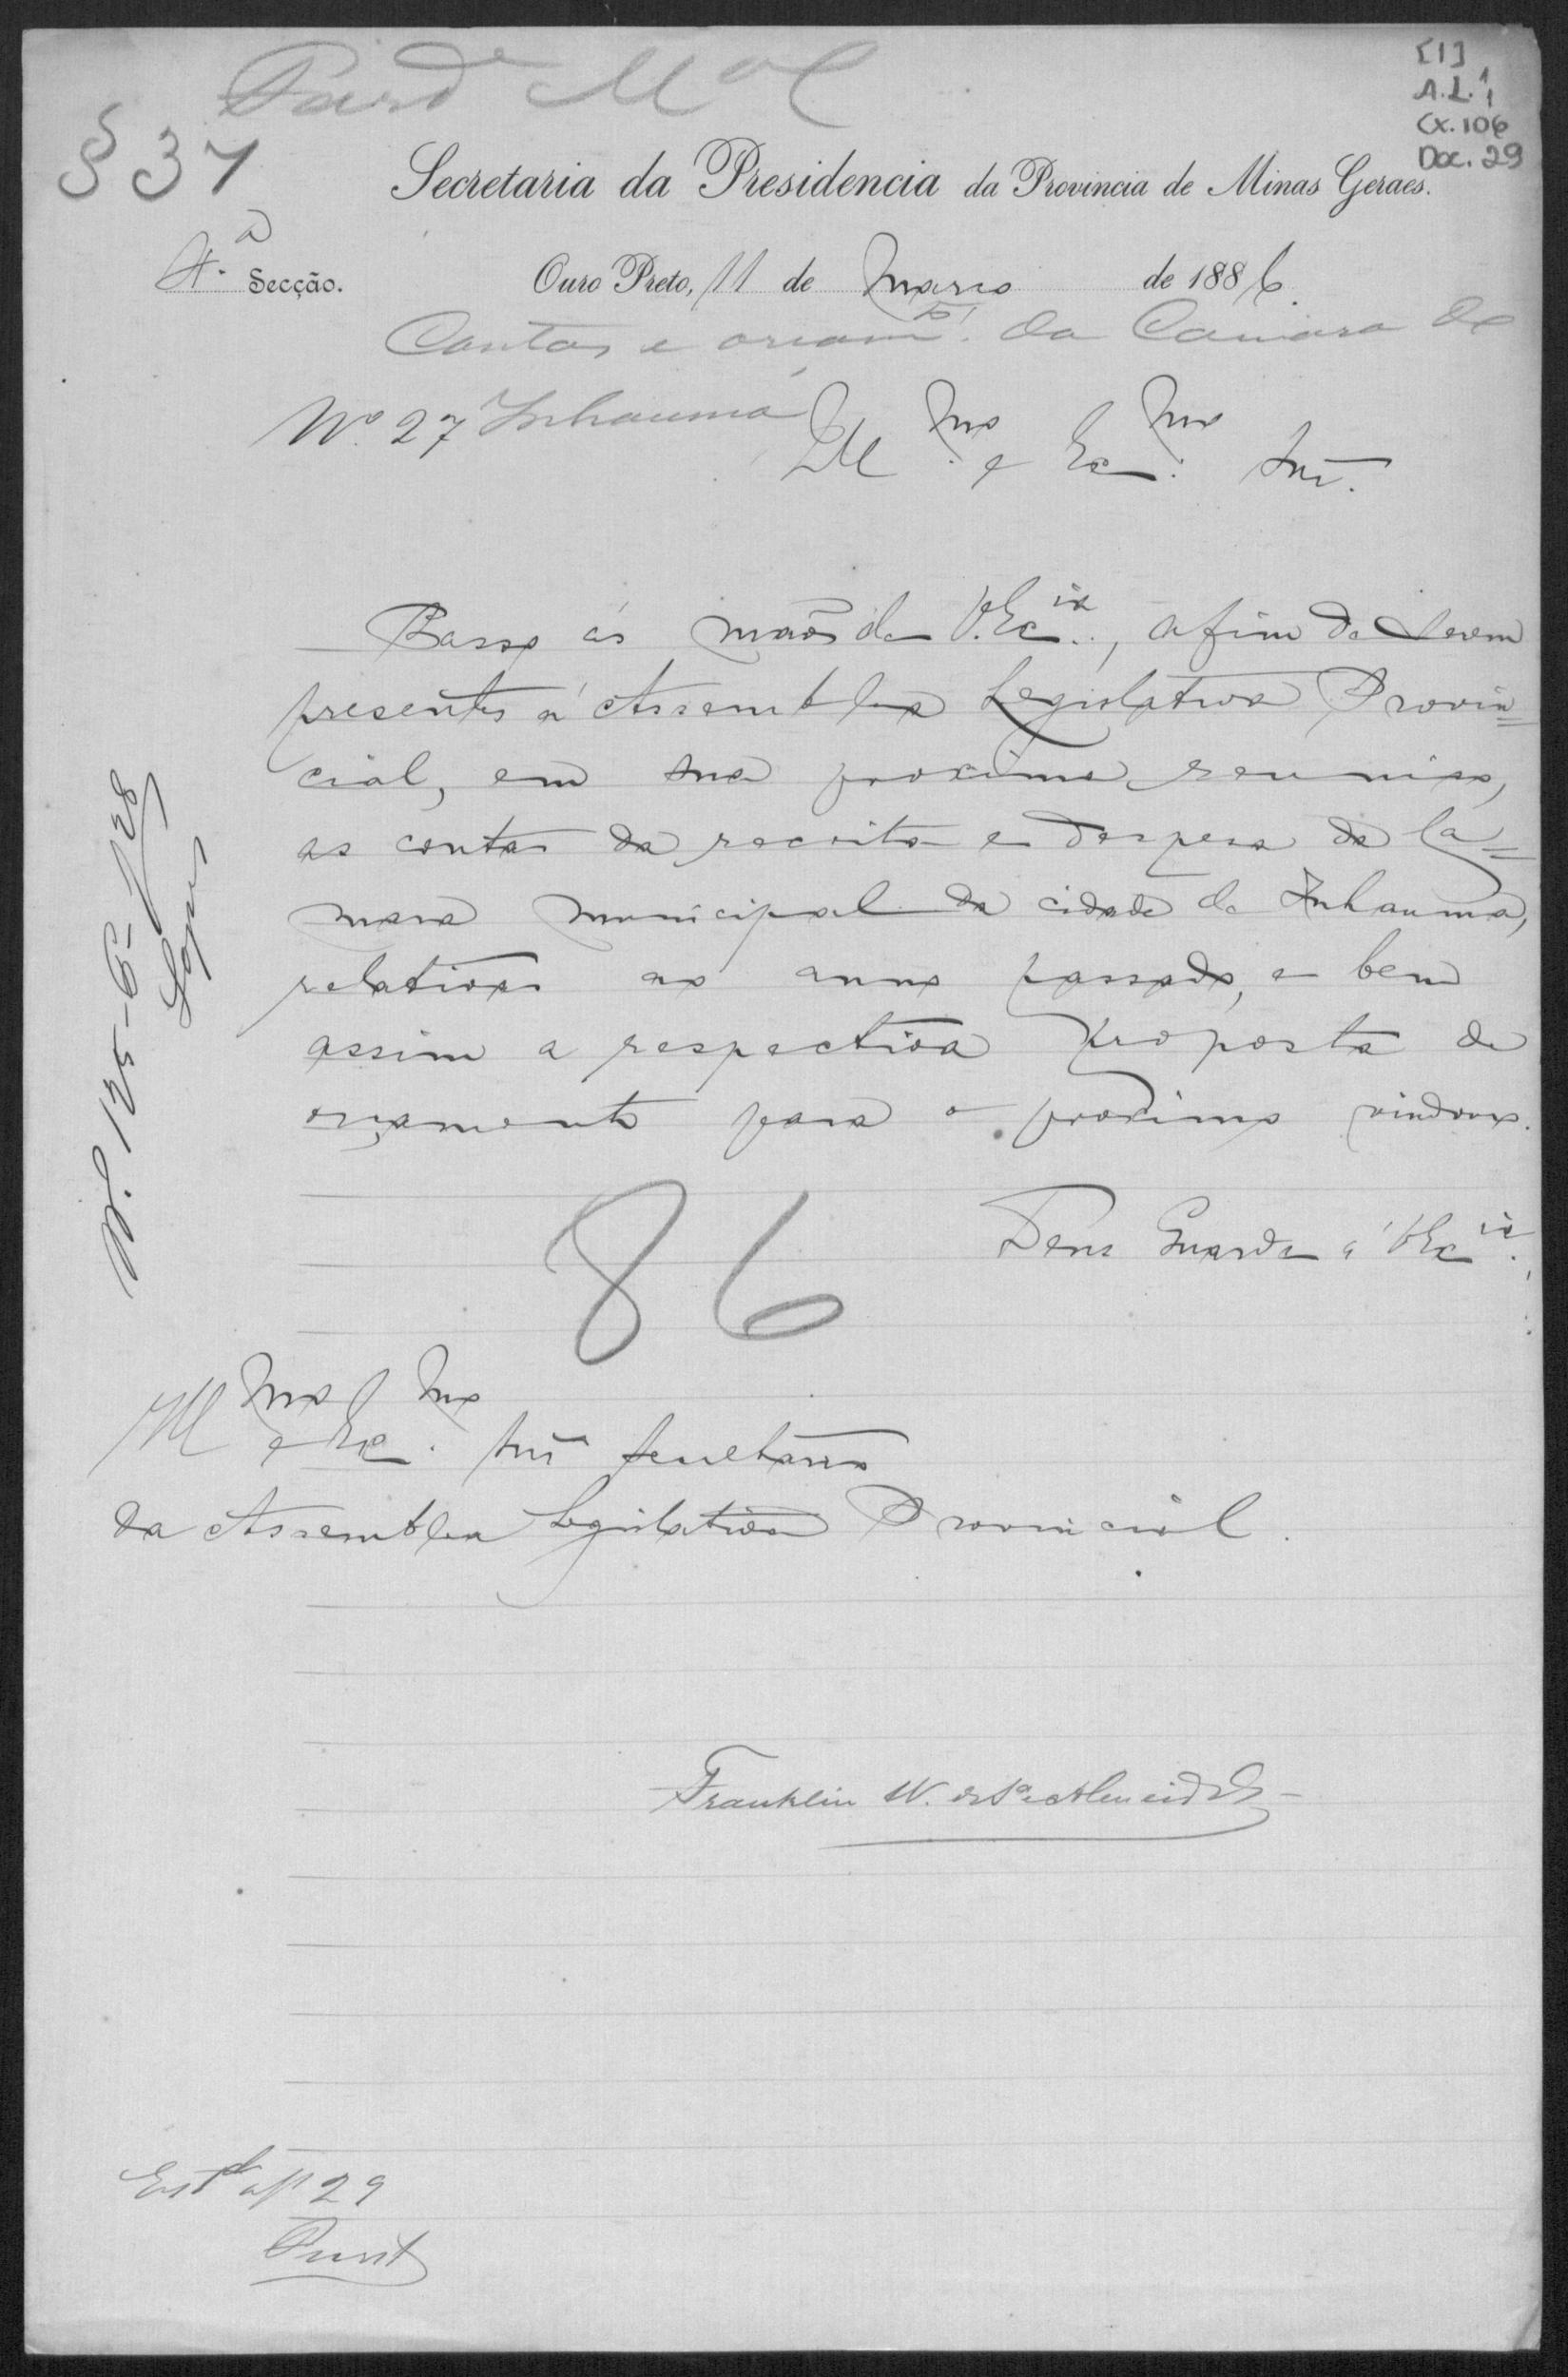 [1]
A.L. 1/1
Cx. 106
Doc. 29
§ 37
Secretaria da Presidencia da Provincia de Minas Geraes.
4.ª Secção. Ouro Preto, 11 de Março de 1886.
Contas e orçam.to da Camara de
Inhauma
Nº 27
Ill.mo e Ex.mo Snr.
Passo ás mãos de V. Ex.cia, afim de serem
presentes á Assemblea Legislativa Provin=
cial, em sua proxima reunião,
as contas da receita e despesa da Ca=
mara municipal da cidade de Inhauma,
relativas ao anno passado, e bem
assim a respectiva proposta de
orçamento para o proximo vindouro.
Deus Guarde a V Ex.cia
86
Ill.mo e Ex.mo Snr. Secretario
da Assemblea Legislativa Provincial.
Franklin W. de Sá e Almeida
29